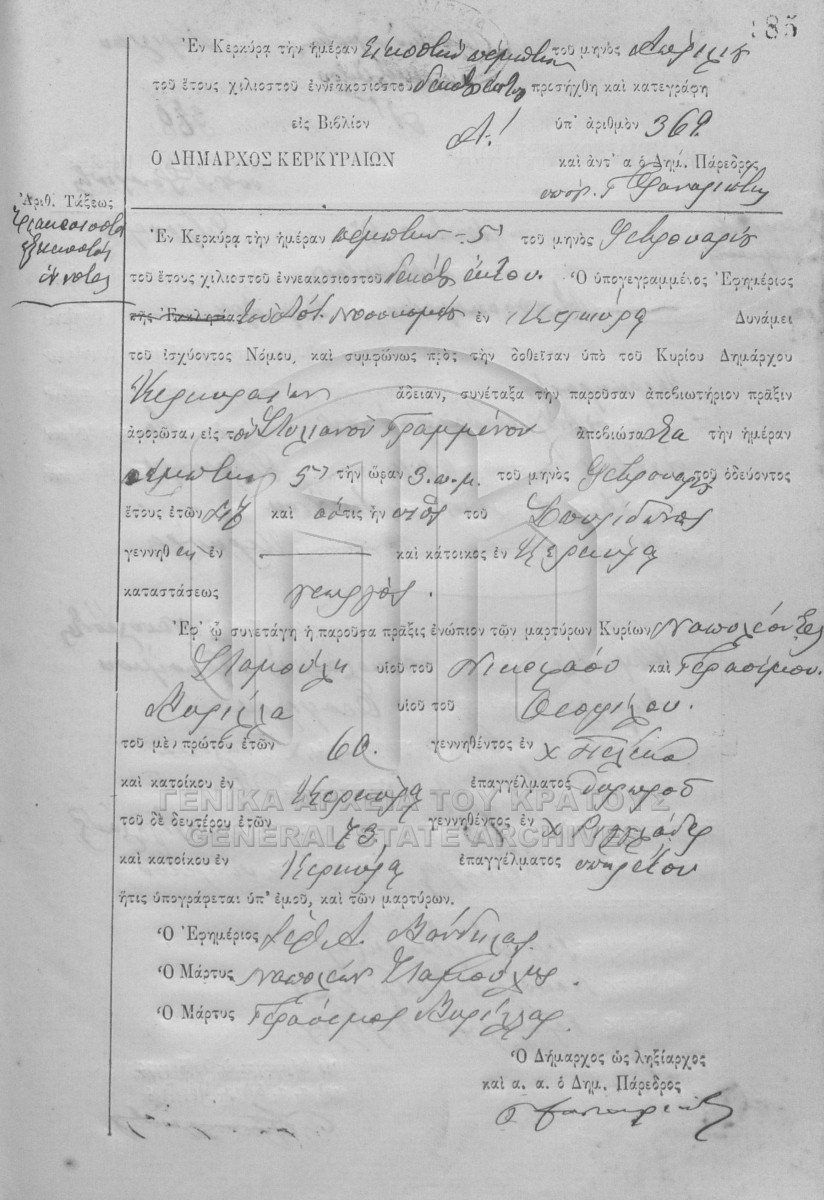 185
Ἐν Κερκύρᾳ τὴν ἡμέραν Εἰκοστὴν πέμπτην τοῦ μηνὸς Ἀπριλίου
τοῦ ἔτους χιλιοστοῦ ἐννεακοσιοστοῦ προσήχθη καὶ κατεγράφη
εἰς Βιβλίον Α! ὑπ' ἀριθμὸν 369.
Ὁ ΔΗΜΑΡΧΟΣ ΚΕΡΚΥΡΑΙΩΝ καὶ ἀντ' α ὁ Δημ. Πάρεδρος
Ἀριθ. Τάξεως
τριακοσιοστὸς
ἑξηκοστὸς
ἔννατος
Ἐν Κερκύρᾳ τὴν ἡμέραν πέμπτην - 5 τοῦ μηνὸς Φεβρουαρίου
τοῦ ἔτους χιλιοστοῦ ἐννεακοσιοστοῦ δεκάτου ἕκτου. Ὁ ὑπογεγραμμένος Ἐφημέριος
τῆς Ἐκκλησίας τοῦ Νοσοκομείου ἐν Κερκύρᾳ Δυνάμει
τοῦ ἰσχύοντος Νόμου, καὶ συμφώνως πρὸς τὴν δοθεῖσαν ὑπὸ τοῦ Κυρίου Δημάρχου
Κερκυραίων ἄδειαν, συνέταξα τὴν παροῦσαν ἀποβιωτήριον πρᾶξιν
ἀφορῶσαν εἰς τὸν Στυλιανὸν Γραμμένον ἀποβιώσαντα τὴν ἡμέραν
πέμπτην 5 τὴν ὥραν 3. π.μ. τοῦ μηνὸς Φεβρουαρίου τοῦ ὁδεύοντος
ἔτους ἐτῶν καὶ ὅστις ἦν υἱὸς τοῦ Σπυρίδωνος
γεννηθεὶς ἐν — καὶ κάτοικος ἐν Κερκύρᾳ
καταστάσεως γεωργός.
Ἐφ' ᾧ συνετάγη ἡ παροῦσα πρᾶξις ἐνώπιον τῶν μαρτύρων Κυρίων Ναπολέοντος
Σταμούλη υἱοῦ τοῦ Νικολάου καὶ Γερασίμου
Βαρέλλα υἱοῦ τοῦ Θεοφίλου.
τοῦ μὲν πρώτου ἐτῶν 60. γεννηθέντος ἐν χ Πέλεκα
καὶ κατοίκου ἐν Κερκύρᾳ ἐπαγγέλματος θυρωροῦ
τοῦ δὲ δευτέρου ἐτῶν 73 γεννηθέντος ἐν χ
καὶ κατοίκου ἐν Κερκύρᾳ ἐπαγγέλματος ὑπηρέτου
ἥτις ὑπογράφεται ὑπ' ἐμοῦ, καὶ τῶν μαρτύρων.
Ὁ Ἐφημέριος
Ὁ Μάρτυς Ναπολέων Σταμούλης.
Ὁ Μάρτυς Γεράσιμος Βαρέλλας.
Ὁ Δήμαρχος ὡς ληξίαρχος
καὶ α. α. ὁ Δημ. Πάρεδρος
ΓΕΝΙΚΑ ΑΡΧΕΙΑ ΤΟΥ ΚΡΑΤΟΥΣ
GENERAL STATE ARCHIVES